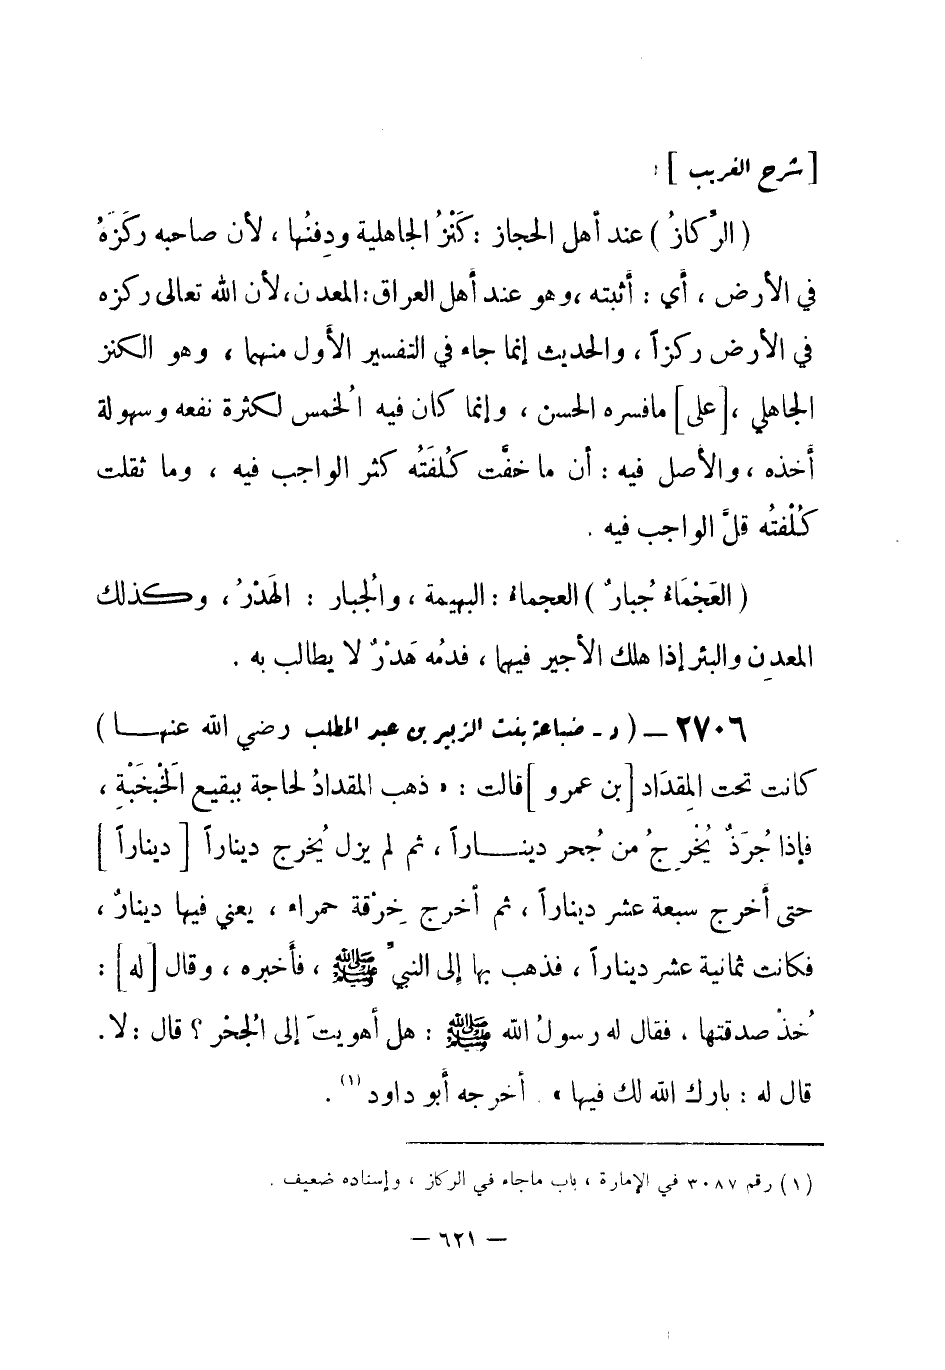 [ شرح الغريب ] :
( الرِّكازُ ) عند أهل الحجاز : كَنْزُ الجاهلية ودِفنُها ، لأن صاحبه ركَزَهُ
في الأرض ، أي : أثبته ، وهو عند أهل العراق : المعدن ، لأن الله تعالى ركزه
في الأرض ركزاً ، والحديث إنما جاء في التفسير الأول منهما ، وهو الكنز
الجاهلي ، [على] مافسره الحسن ، وإنما كان فيه الخُمس لكثرة نفعه وسهولة
أخذه ، والأصل فيه : أن ما خفَّت كُلفَتُه كثر الواجب فيه ، وما ثقلت
كُلْفتُه قلَّ الواجب فيه .
( العَجْمَاءُ جُبارٌ ) العجماءُ : البهيمة ، والجُبار : الهَدْرُ ، وكذلك
المعدِن والبئر إذا هلك الأجير فيها ، فدمُه هَدْرٌ لا يطالب به .
٢٧٠٦ – ( د - ضباعة بنت الزبير بن عبد المطلب رضي الله عنهـا )
كانت تحت المِقدَاد [ بن عمرو ] قالت : « ذهب المقدادُ لحاجة ببقيع الخَبْخَبْةِ ،
فإذا جُرَذٌ يُخْرِجُ من جُحر دينـاراً ، ثم لم يزل يُخرج ديناراً [ ديناراً ]
حتى أخرج سبعة عشر ديناراً ، ثم أخرج خِرْقة حمراء ، يعني فيها دينارٌ ،
فكانت ثمانية عشر ديناراً ، فذهب بها إلى النبيِّ ﷺ ، فأخبره ، وقال [له] :
خُذْ صدقتها ، فقال له رسولُ الله ﷺ : هل أهويتَ إلى الجُحْر ؟ قال : لا .
قال له : بارك الله لك فيها » . أخرجه أبو داود (١) .
(١) رقم ٣٠٨٧ في الإمارة ، باب ماجاء في الركاز ، وإسناده ضعيف .
– ٦٢١ –